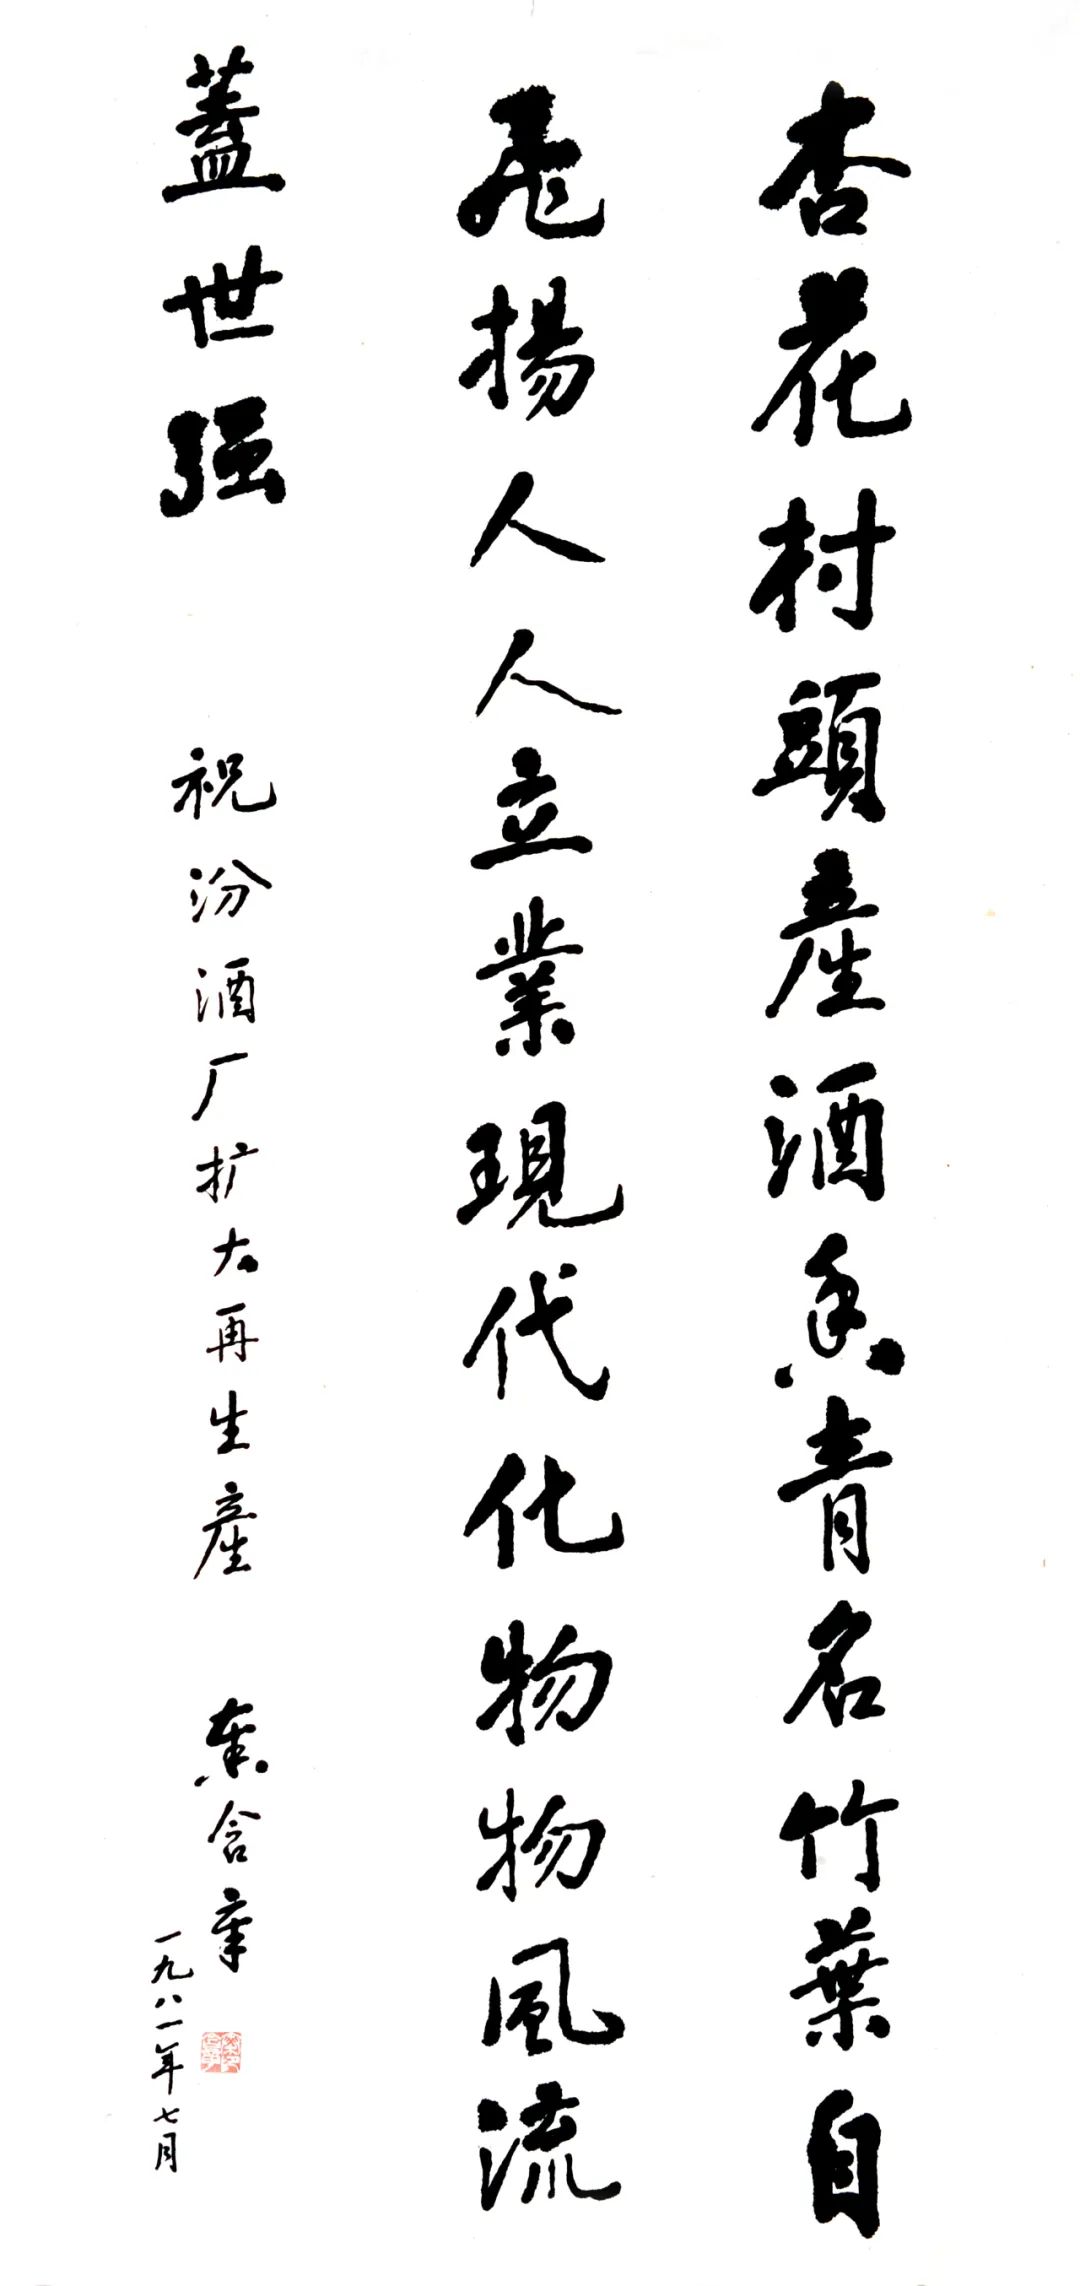 杏花村頭産酒香青名竹葉自
飛揚人人立業現代化物物風流
蓋世强 祝汾酒厂扩大再生産 秦含章
一九八一年七月